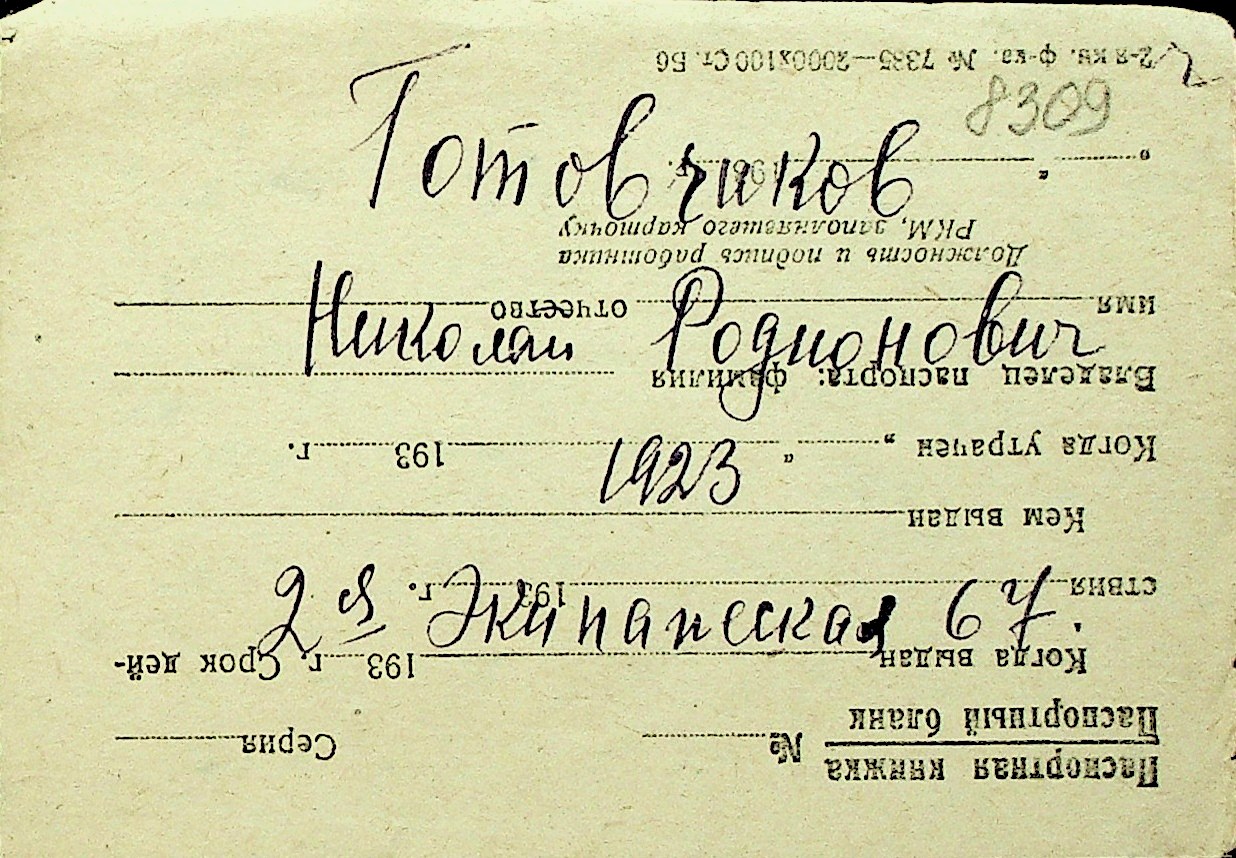 8309
Готовчиков
Николай Родионович
1923
2я Экипажеская 67.
Паспортная книжка
Паспортный бланк № Серия
Когда выдан 193 г. Срок дей-
ствия 193 г.
Кем выдан
Когда утрачен „ “ 193 г.
Владелец паспорта: фамилия
имя отчество
Должность и подпись работника
РКМ, заполнявшего карточку
„ “ 193 г.
2-я кн. ф-ка. № 7335—2000х100 Ст. Бб